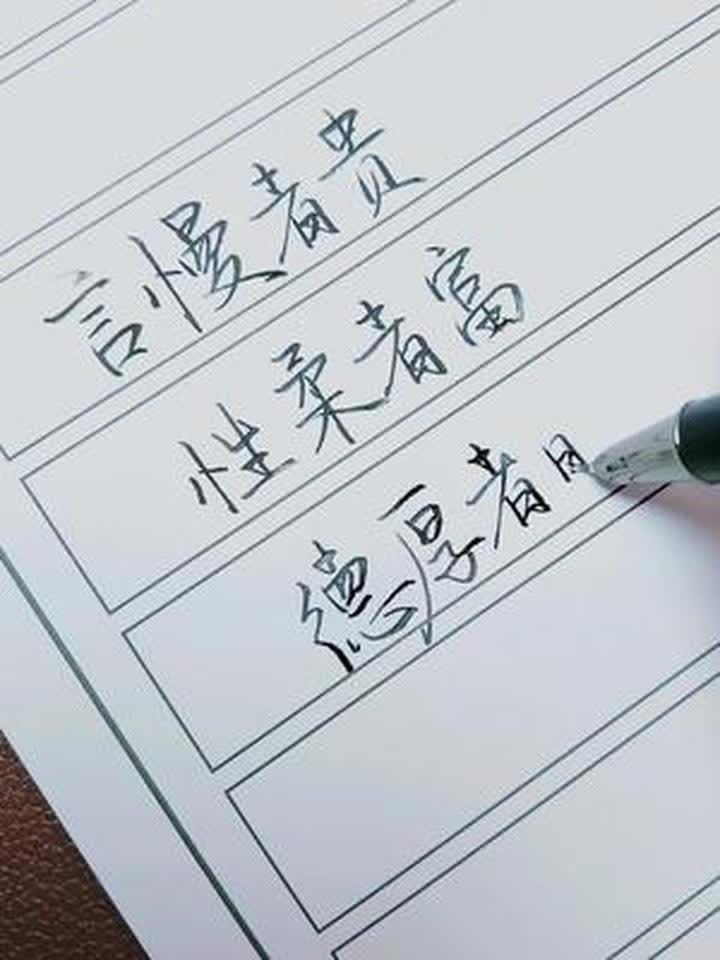 言慢者贵
性柔者富
德厚者